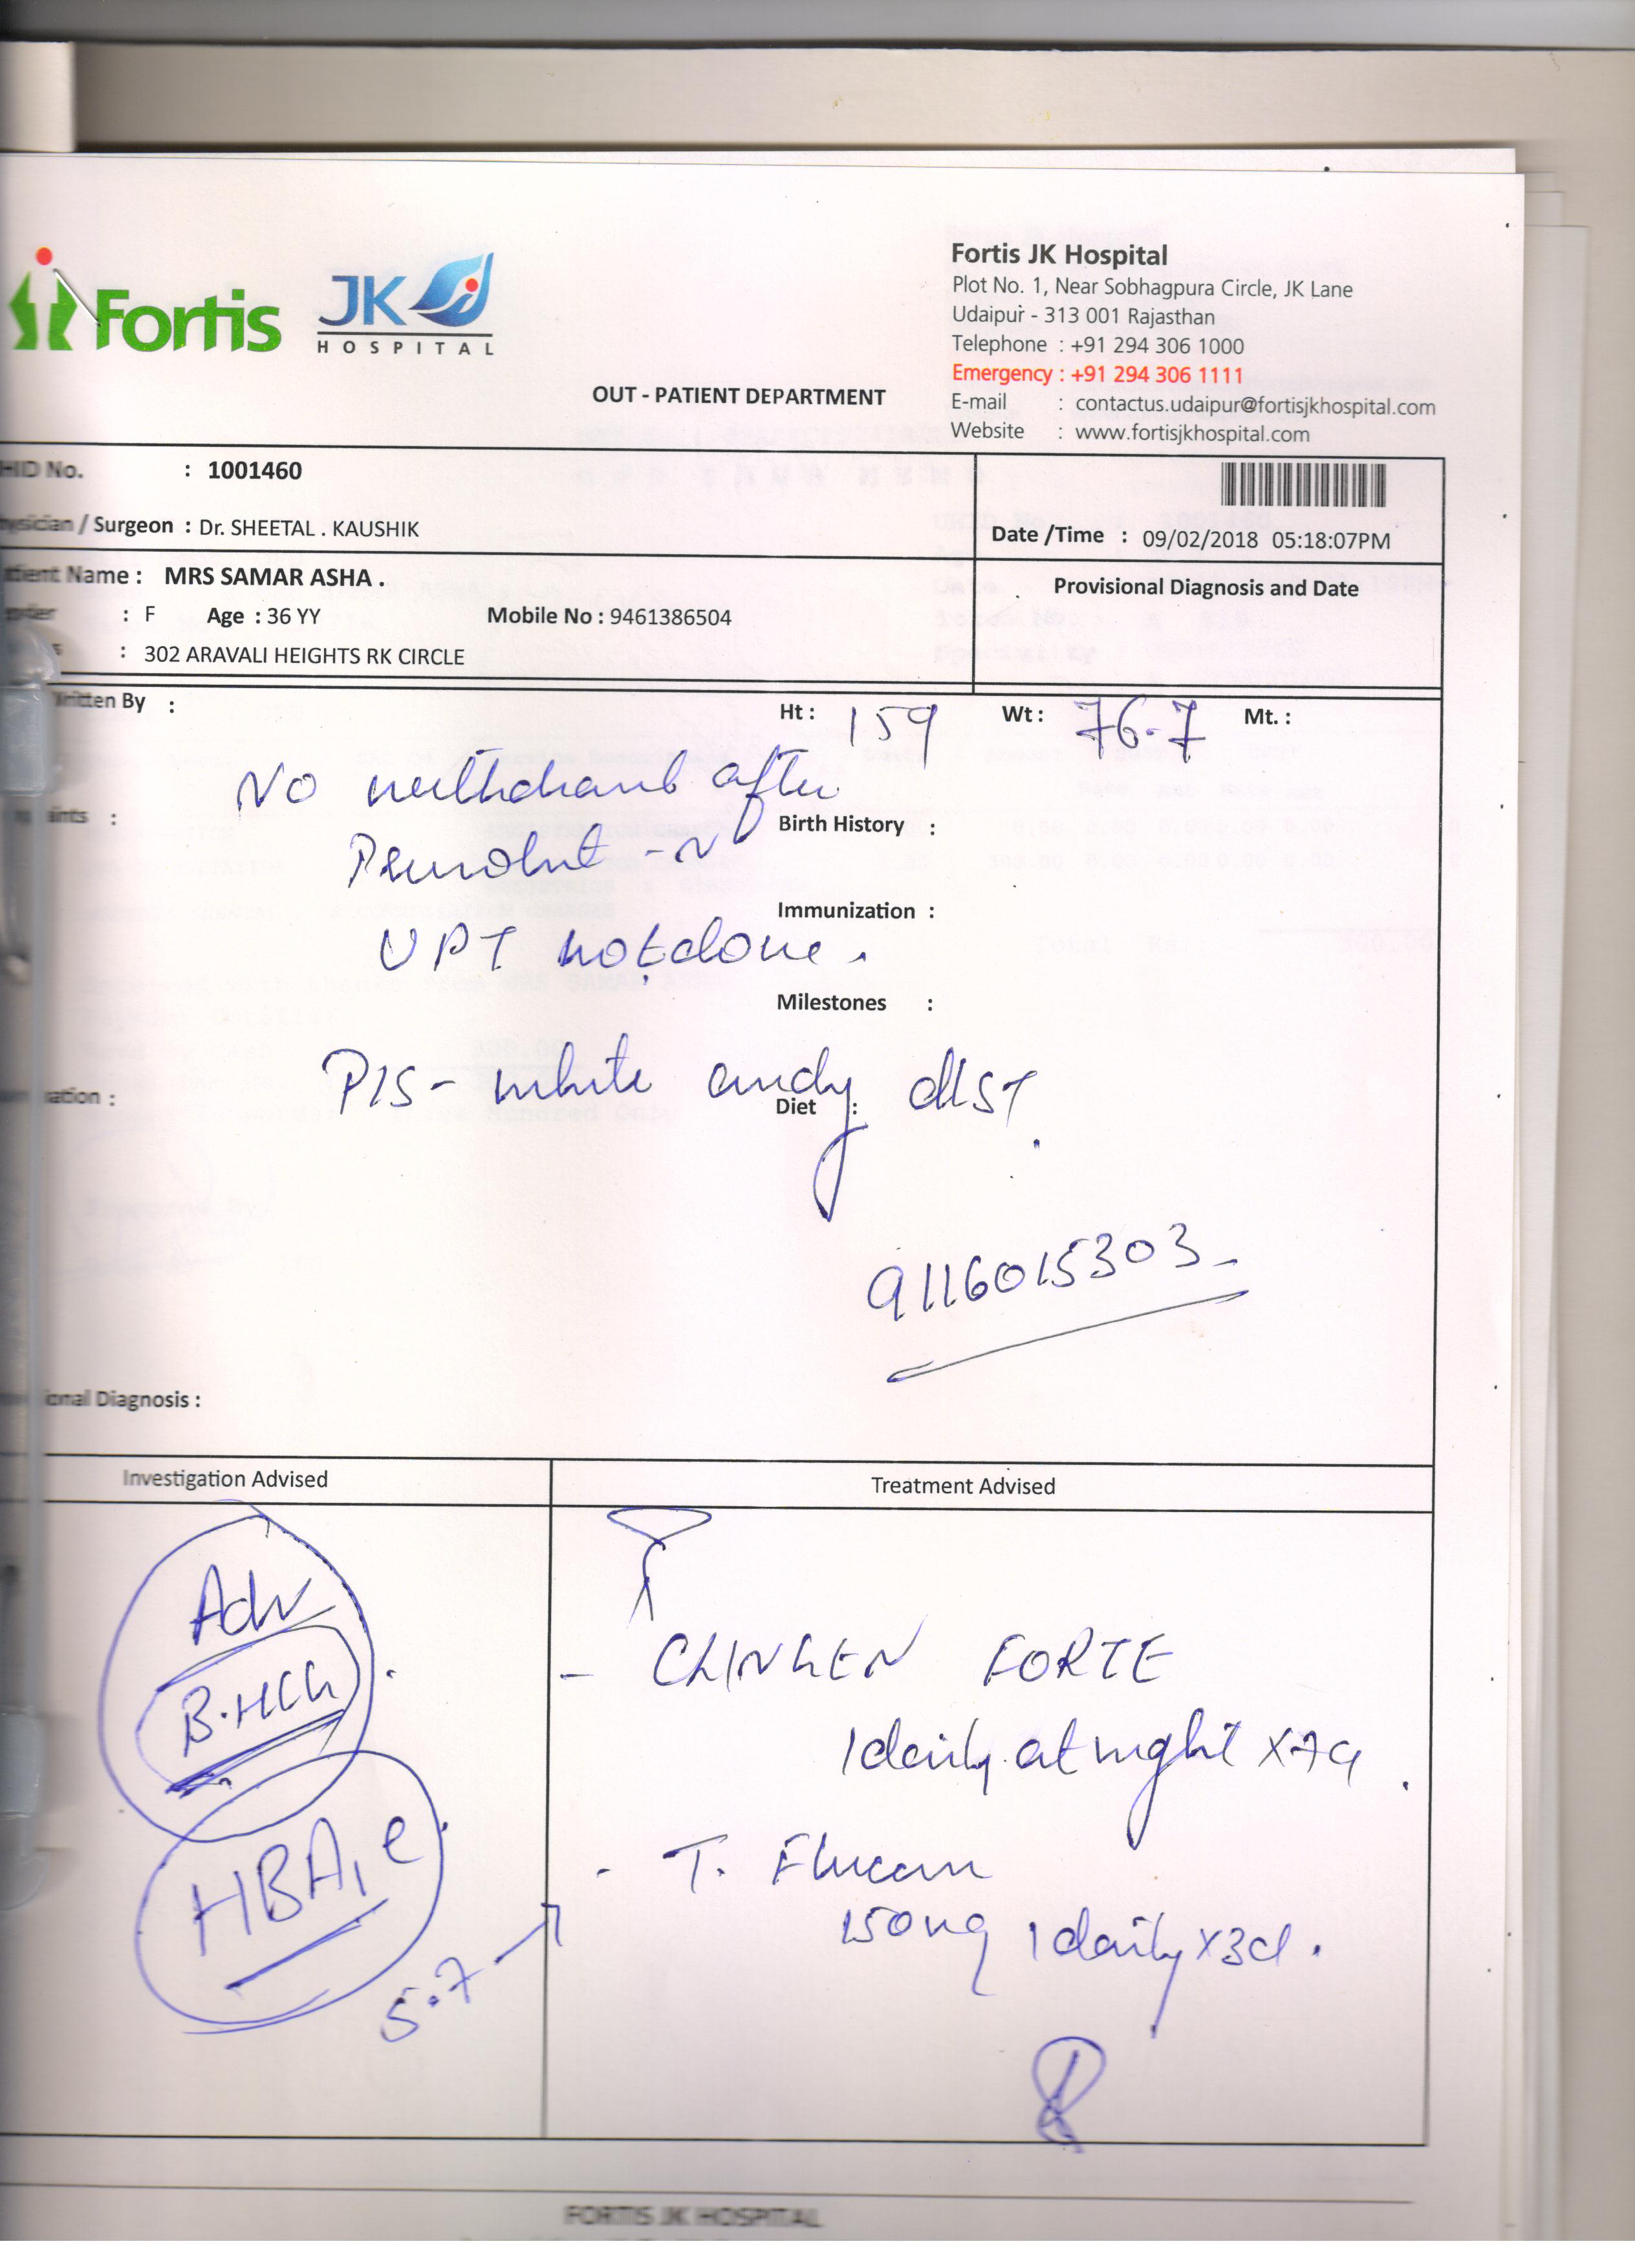 Fortis
JK
HOSPITAL
OUT - PATIENT DEPARTMENT
Fortis JK Hospital
Plot No. 1, Near Sobhagpura Circle, JK Lane
Udaipur - 313 001 Rajasthan
Telephone : +91 294 306 1000
Emergency : +91 294 306 1111
E-mail : contactus.udaipur@fortisjkhospital.com
Website : www.fortisjkhospital.com
HID No. : 1001460
ysician / Surgeon : Dr. SHEETAL . KAUSHIK
Date /Time : 09/02/2018 05:18:07PM
tient Name : MRS SAMAR ASHA .
Provisional Diagnosis and Date
: F Age : 36 YY Mobile No : 9461386504
: 302 ARAVALI HEIGHTS RK CIRCLE
Written By :
Ht : 159 Wt : 76.7 Mt. :
No after
aints :
Birth History :
Immunization :
UPT not done.
Milestones :
P/S - white
nation :
Diet :
9116015303
ional Diagnosis :
Investigation Advised
Treatment Advised
Adv
B.HCG
HBA1c
5.7
- CLINGEN FORTE
1 daily at night x 7d
- T. Flucan
150mg 1 daily x 3d.
FORTIS JK HOSPITAL